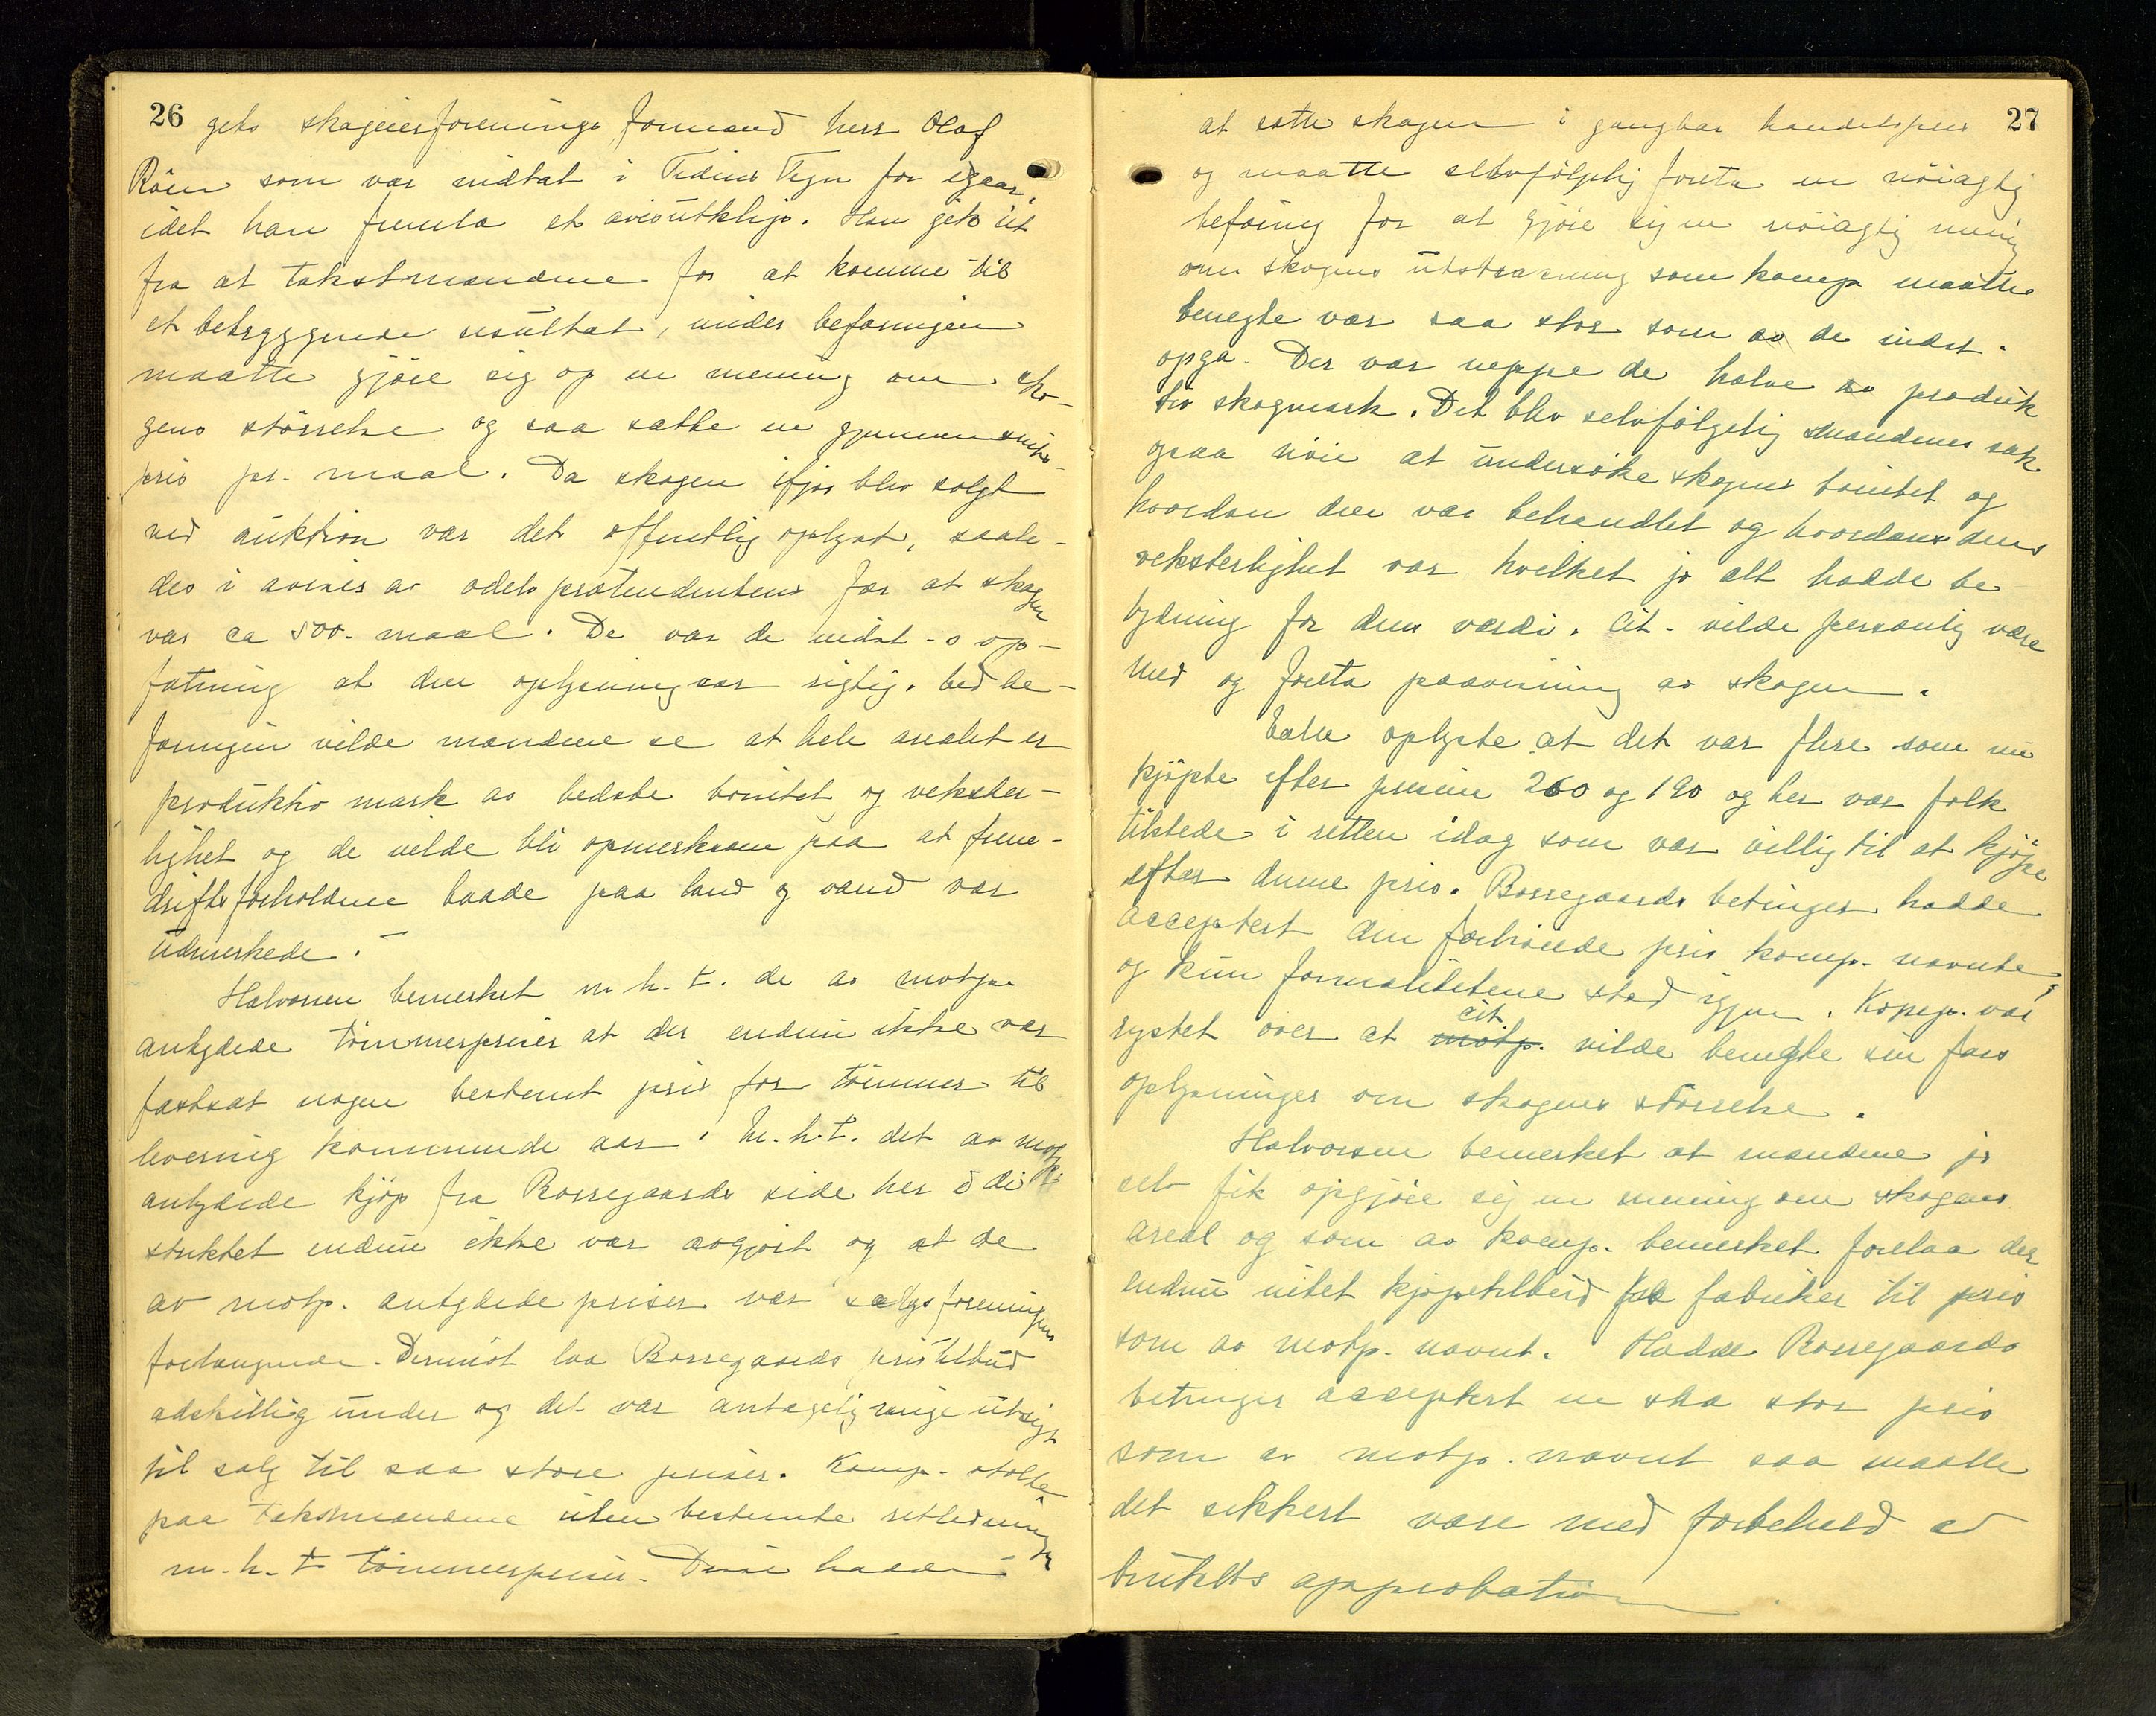 26
gets skogeierforenings formand herr Olaf
Röen som var indtat i Tidens Tegn for igaar,
idet han fremla et avisutklip. Han gik ut
fra at takstmændene for at komme til
et betryggende resultat, under befaringen
maatte gjøre sig op en mening om sko-
gens störrelse og saa sætte en gjennemsnits-
pris pr. maal. Da skogen ifjor blev solgt
ved auktion var det offentlig oplyst, saale-
des i aviser av odelspretendentens far at skogen
var ca 500 maal. De var de indst-s op-
fatning at den oplysning var rigtig. Ved be-
faringen vilde mændene se at hele arealet er
produktiv mark av bedste bonitet og vekster-
lighet og de vilde bli opmerksom paa at frem-
driftsforholdene baade paa land og vand var
udmerkede. -
Halvorsen bemerket m.h.t. de av motp.
antydede tömmerpriser at der endnu ikke var
fastsat nogen bestemt pris for tömmer til
levering kommende aar. M.h.t. det av motp.
antydede kjöp fra Borregaards side her i di-
striktet endnu ikke var avgjort og at de
av motp. antydede priser var salgsforeningens
forlangende. Derimot laa Borregaards pristilbud
adskillig under og det var antagelig ringe utsigt
til salg til saa store priser. Komp. stolte
paa takstmændene uten bestemte retledninger
m.h.t tömmerpriser. Disse hadde
27
at sætte skogen i gangbar handelspris
og maatte selvfölgelig foreta en nöiagtig
befaring for at gjöre sig en nöiagtig mening
om skogens utstrækning som komp maatte
benegte var saa stor som av de indst.
opga. Der var neppe de halve av produk
tiv skogmark. Det blev selvfölgelig mændenes sak
ogsaa nöie at undersöke skogens bonitet og
hvordan den var behandlet og hvordan dens
veksterlighet var hvilket jo alt hadde be
tydning for dens værdi. Cit. vilde personlig være
med og foreta paavisning av skogen.
Ealle oplyste at det var flere som nu
kjöpte efter prisene 260 og 190 og her var folk
tilstede i retten idag som var villig til at kjöpe
efter denne pris. Borregaards betinger hadde
acceptert den forhöiede pris komp. nævnte,
og kun formalitetene stod igjen. Komp. var
rystet over at cit. vilde benegte sin fars
oplysninger om skogens störrelse.
Halvorsen bemerket at mændene jo
selv fik opgjöre sig en mening om skogens
areal og som av komp. bemerket forelaa der
endnu intet kjöpetilbud fra fabriker til pris
som av motp. nævnt. Hadde Borregaards
betinger acceptert en saa stor pris
som av motp. nævnt saa maatte
det sikkert være med forbehold av
brukets approbation